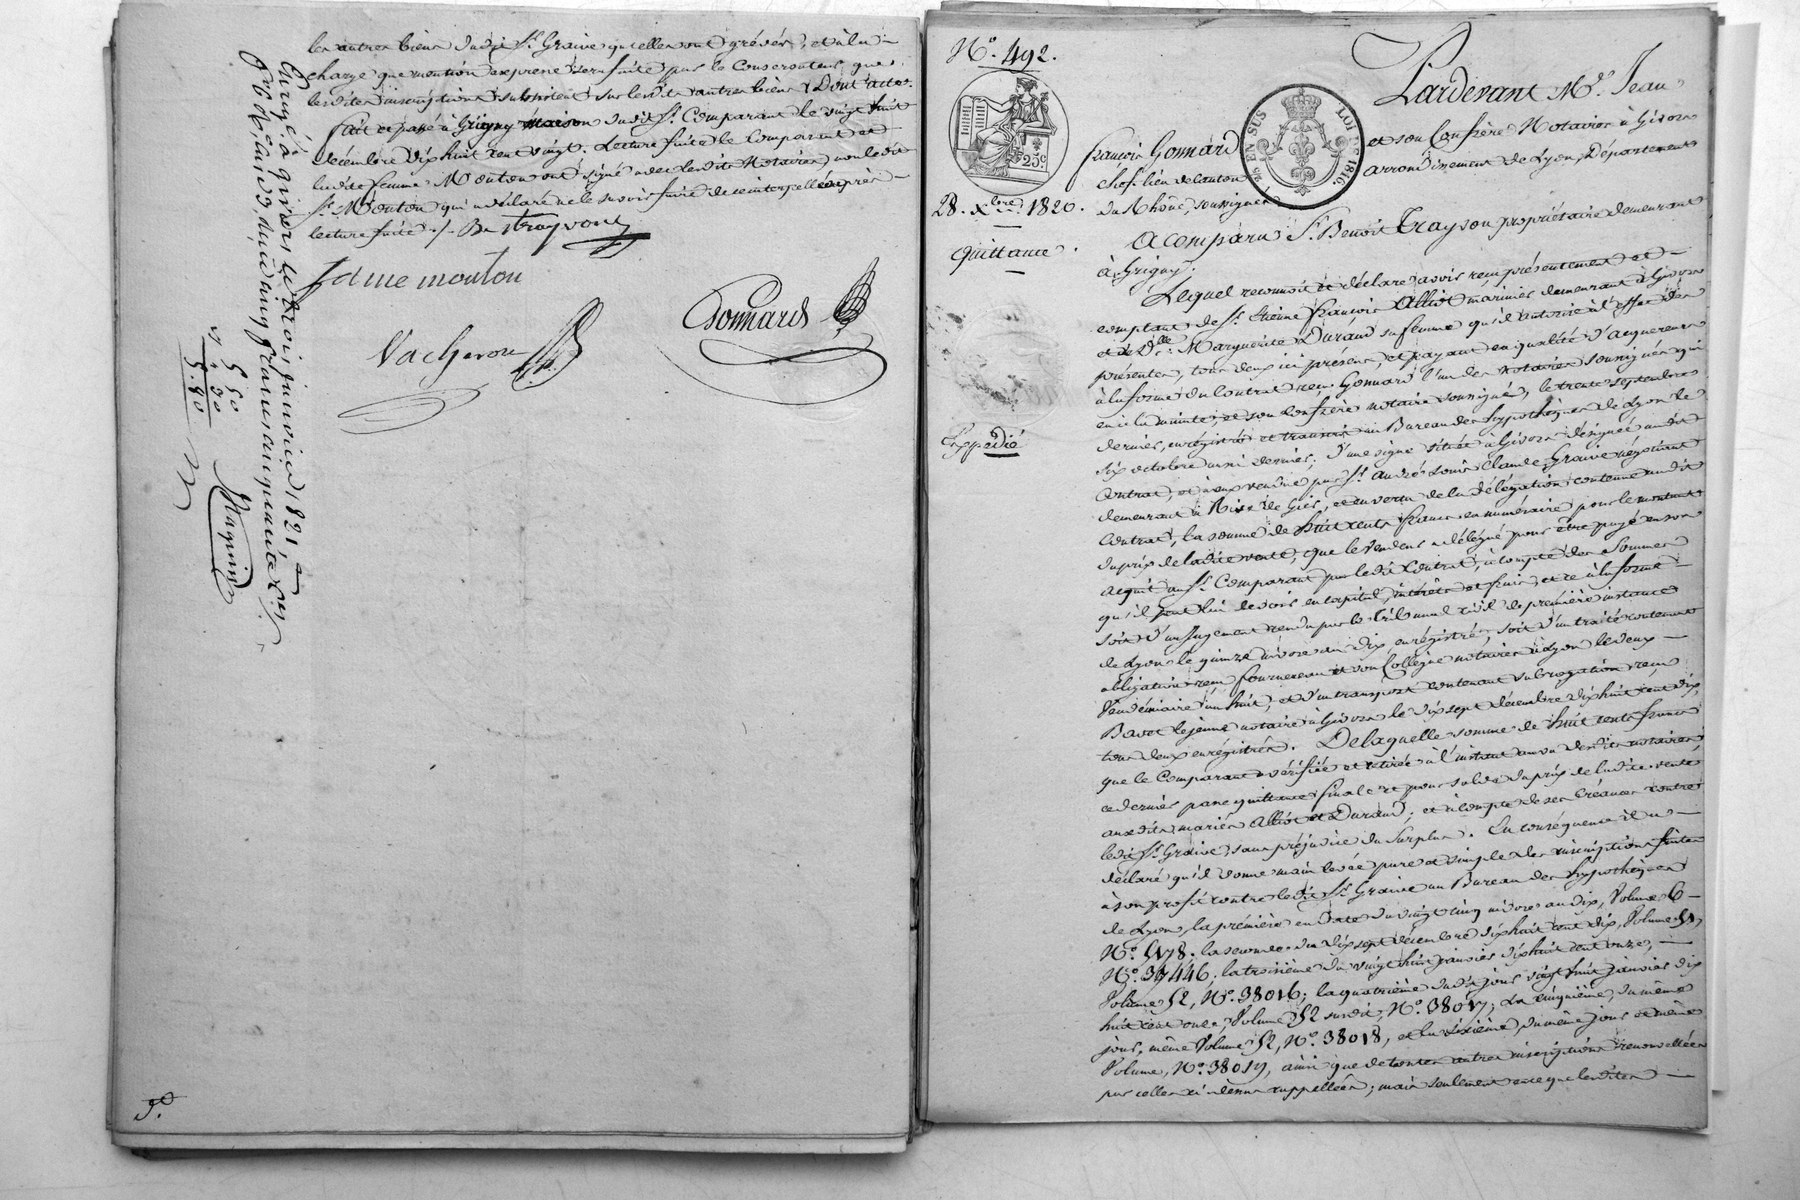 les autres biens dudit Sr. Graive qu'elles ont grévés, et à la
charge que mention expresse sera faite par le Conservateur que
lesdites inscriptions subsistent sur lesdits autres biens. Dont acte.
fait et passé à Grigny maison dudit Sr. Comparant le vingt huit
décembre dix huit cent vingt. Lecture faite le Comparant et
ladite femme Mouton ont signé avec lesdits Notaires, non ledit
Sr. Mouton qui a déclaré ne le savoir faire de ce interpellé après
lecture faite ./. B Trayson
fame mouton
Gonnard
Vacheron
Enregé. à givors le trois janvier 1821
fo. 60 Ro. Reçu cinq francs cinquante ces.
5 50
. 50
Maguin
No. 492.
25c.
EN SUS
LOI DE 1816.
Pardevant Me. Jean
françois Gonnard et son Confrère Notaires à Givors
chef-lieu de canton arrondissement de Lyon, Département
du Rhône, soussignés
28. Xbre. 1820.
A comparu Sr. Benoit Trayson propriétaire demeurant
Quittance.
à Grigny.
Lequel reconnoit et déclare avoir reçu présentement et
comptant de Sr. Etienne françois Alliot marinier demeurant à Givors
et de Dlle. Marguerite Durand sa femme qu'il autorise à l'effet des
présentes, tous deux ici présens, et payant en qualité d'acquéreurs
à la forme du Contrat reçu Gonnard l'un des notaires soussignés qui
en a la minute, et son Confrère notaire soussigné, le trente septembre
dernier, enregistré et transcrit au Bureau des hypothèques de Lyon le
Expédié
six octobre aussi dernier; d'une vigne située à Givors désignée audit
Contrat, et à eux vendue par Sr. André Louis Claude Graive négociant
demeurant à Rive de Gier, et en vertu de la délégation contenue audit
Contrat, la somme de huit cents francs en numéraire pour le montant
du prix de ladite vente, que le vendeur a délégué pour être payé en son
acquit au Sr. Comparant par ledit Contrat, à compte des sommes
qu'il peut lui devoir en capital, intérêts et frais, et ce à la forme
soit d'un Jugement rendu par le Tribunal civil de première instance
de Lyon le quinze nivose an dix, enregistré, soit d'un traité contenant
obligation reçu fournereau et son Collègue notaires à Lyon le deux
Vendémiaire an huit, et d'un transport contenant subrogation reçu
Bavet le jeune notaire à Givors le dix sept décembre dix huit cent dix,
tous deux enregistrés. De laquelle somme de huit cents francs
que le Comparant a vérifiée et retirée à l'instant au vu desdits notaires,
ce dernier passe quittance finale et pour solde du prix de ladite vente
auxdits mariés Alliot et Durand; et à compte de ses Créances contre
ledit Sr. Graive, sans préjudice du Surplus. En conséquence il a
déclaré qu'il donne main levée pure et simple des inscriptions faites
à son profit contre ledit Sr. Graive au Bureau des hypothèques
de Lyon, la première en date du vingt cinq nivose an dix, Volume 6
No. 5178. la seconde du dix sept décembre dix huit cent dix, Volume 51,
No. 37446, la troisième du vingt huit janvier dix huit cent onze,
Volume 52, No. 38016; la quatrième dudit jour vingt huit janvier dix
huit cent onze, Volume 52 susdit, No. 38017; La cinquième, du même
jour, même Volume 52, No. 38018, et la sixième, du même jour et même
Volume, No. 38019, ainsi que de toutes autres inscriptions renouvellées
par celles ci dessus rappellées; mais seulement en ce que lesdites